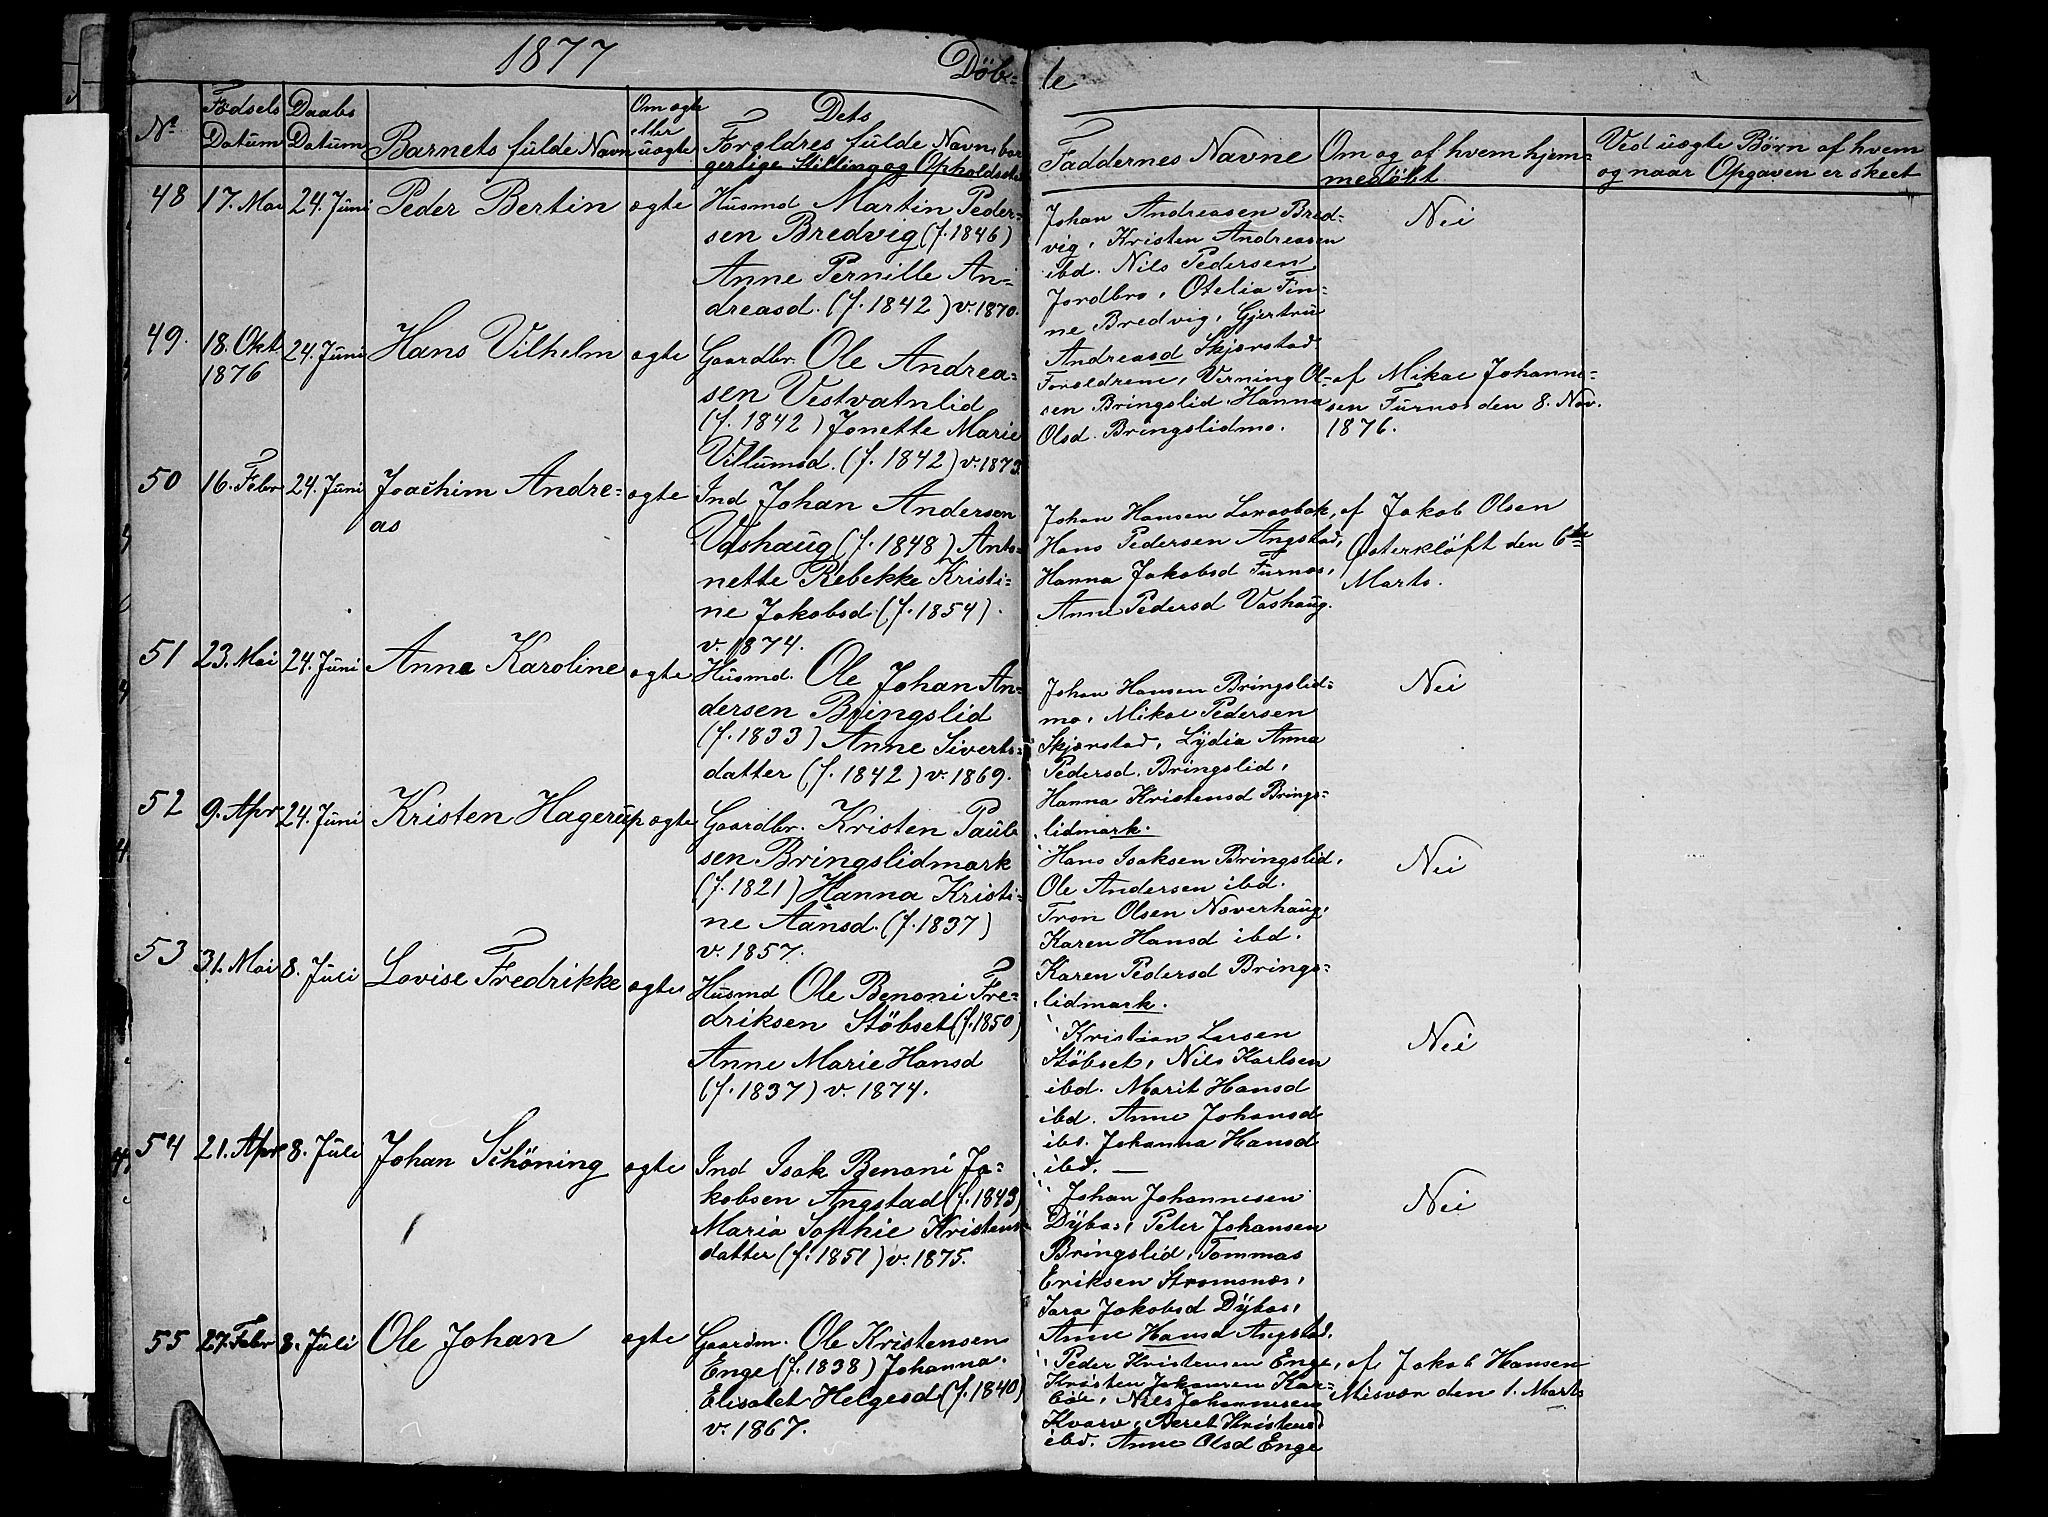 1877 Döb-
le
No
Fødsels
Datum
Daabs
Datum
Barnets fulde Navn
Om ægte
eller
uægte
Dets
Forældres fulde Navn, bor
gerlige Stilling og Opholdsste
Faddernes Navne
Om og af hvem hjem-
medøbt.
Ved uægte Børn af hvem
og naar Opgaven er skeet
48 17. Mai 24. Juni Peder Bertin ægte
Husmd Martin Peder-
sen Bredvig (f. 1846)
Anne Pernille An-
dreasd. (f. 1842) v. 1870.
Johan Andreasen Bred-
vig, Kristen Andreasen
ibd. Nils Pedersen
Jordbro, Otelia Fin-
ne Bredvig, Gjertru
Andreasd Skjærstad
Nei
49. 18. Okt 1876 24. Juni Hans Vilhelm ægte
Gaardbr. Ole Andrea-
sen Vestvatnlid
(f. 1842) Jonette Marie
Villumsd. (f. 1842) v. 1873.
Forældrene, Verning Ol-
sen Bringslid, Hanna
Olsd. Bringslidmo.
af Mikal Johanne-
sen Furnæs den 8. Nov.
1876.
50 16. Febr 24. Juni Joachim Andre-
as
ægte
Ind Johan Andersen
Vashaug (f. 1848) Anto-
nette Rebekke Kristi-
ne Jakobsd. (f. 1854).
v. 1874.
Johan Hansen
Hans Pedersen Angstad,
Hanna Jakobsd Furnæs,
Anne Pedersd Vashaug.
af Jakob Olsen
Østerkløft den 6te
Marts.
51 23. Mai 24. Juni Anne Karoline ægte
Husmd. Ole Johan An-
dersen Bringslid
(f. 1833) Anne Siverts-
datter (f. 1842) v. 1869.
Johan Hansen Bringslid-
mo, Mikal Pedersen
Skjærstad, Lydia Anna
Pedersd. Bringslid,
Hanna Kristensd Brings-
lidmark.
Nei
52 9. Apr 24. Juni Kristen Hagerup ægte
Gaardbr. Kristen Paul
sen Bringslidmark
(f. 1821) Hanna Kristi-
ne Aansd. (f. 1837)
v. 1857.
Hans Isaksen Bringslid,
Ole Andersen ibd.
Tron Olsen Næverhaug,
Karen Hansd ibd.
Karen Pedersd Brings-
lidmark.
Nei
53 31. Mai 8. Juli Lovise Fredrikke ægte
Husmd Ole Benoni Fre-
driksen Støbset (f. 1850)
Anne Marie Hansd
(f. 1837) v. 1874.
Kristian Larsen
Støbset, Nils Karlsen
ibd. Marit Hansd
ibd. Anne Johansd
ibd. Johanna Hansd
ibd. —
Nei
54 21. Apr 8. Juli Johan Schöning ægte
Ind Isak Benoni Ja-
kobsen Angstad (f. 1843)
Maria Sophie Kristens-
datter (f. 1851) v. 1875.
Johan Johannesen
Dybas, Peter Johansen
Bringslid, Tommas
Eriksen Strømsnæs,
Sara Jakobsd Dybas,
Anne Hansd Angstad.
Nei
55 27. Febr 8. Juli Ole Johan ægte
Gaardm. Ole Kristensen
Enge (f. 1838) Johanna
Elisabet Helgesd (f. 1840)
v. 1867.
Peder Kristensen Enge,
Kristen Johansen Kar-
bøl, Nils Johannesen
Kvarv, Beret Kristensd
ibd. Anne Olsd Enge
af Jakob Hansen
Misvær den 1. Marts